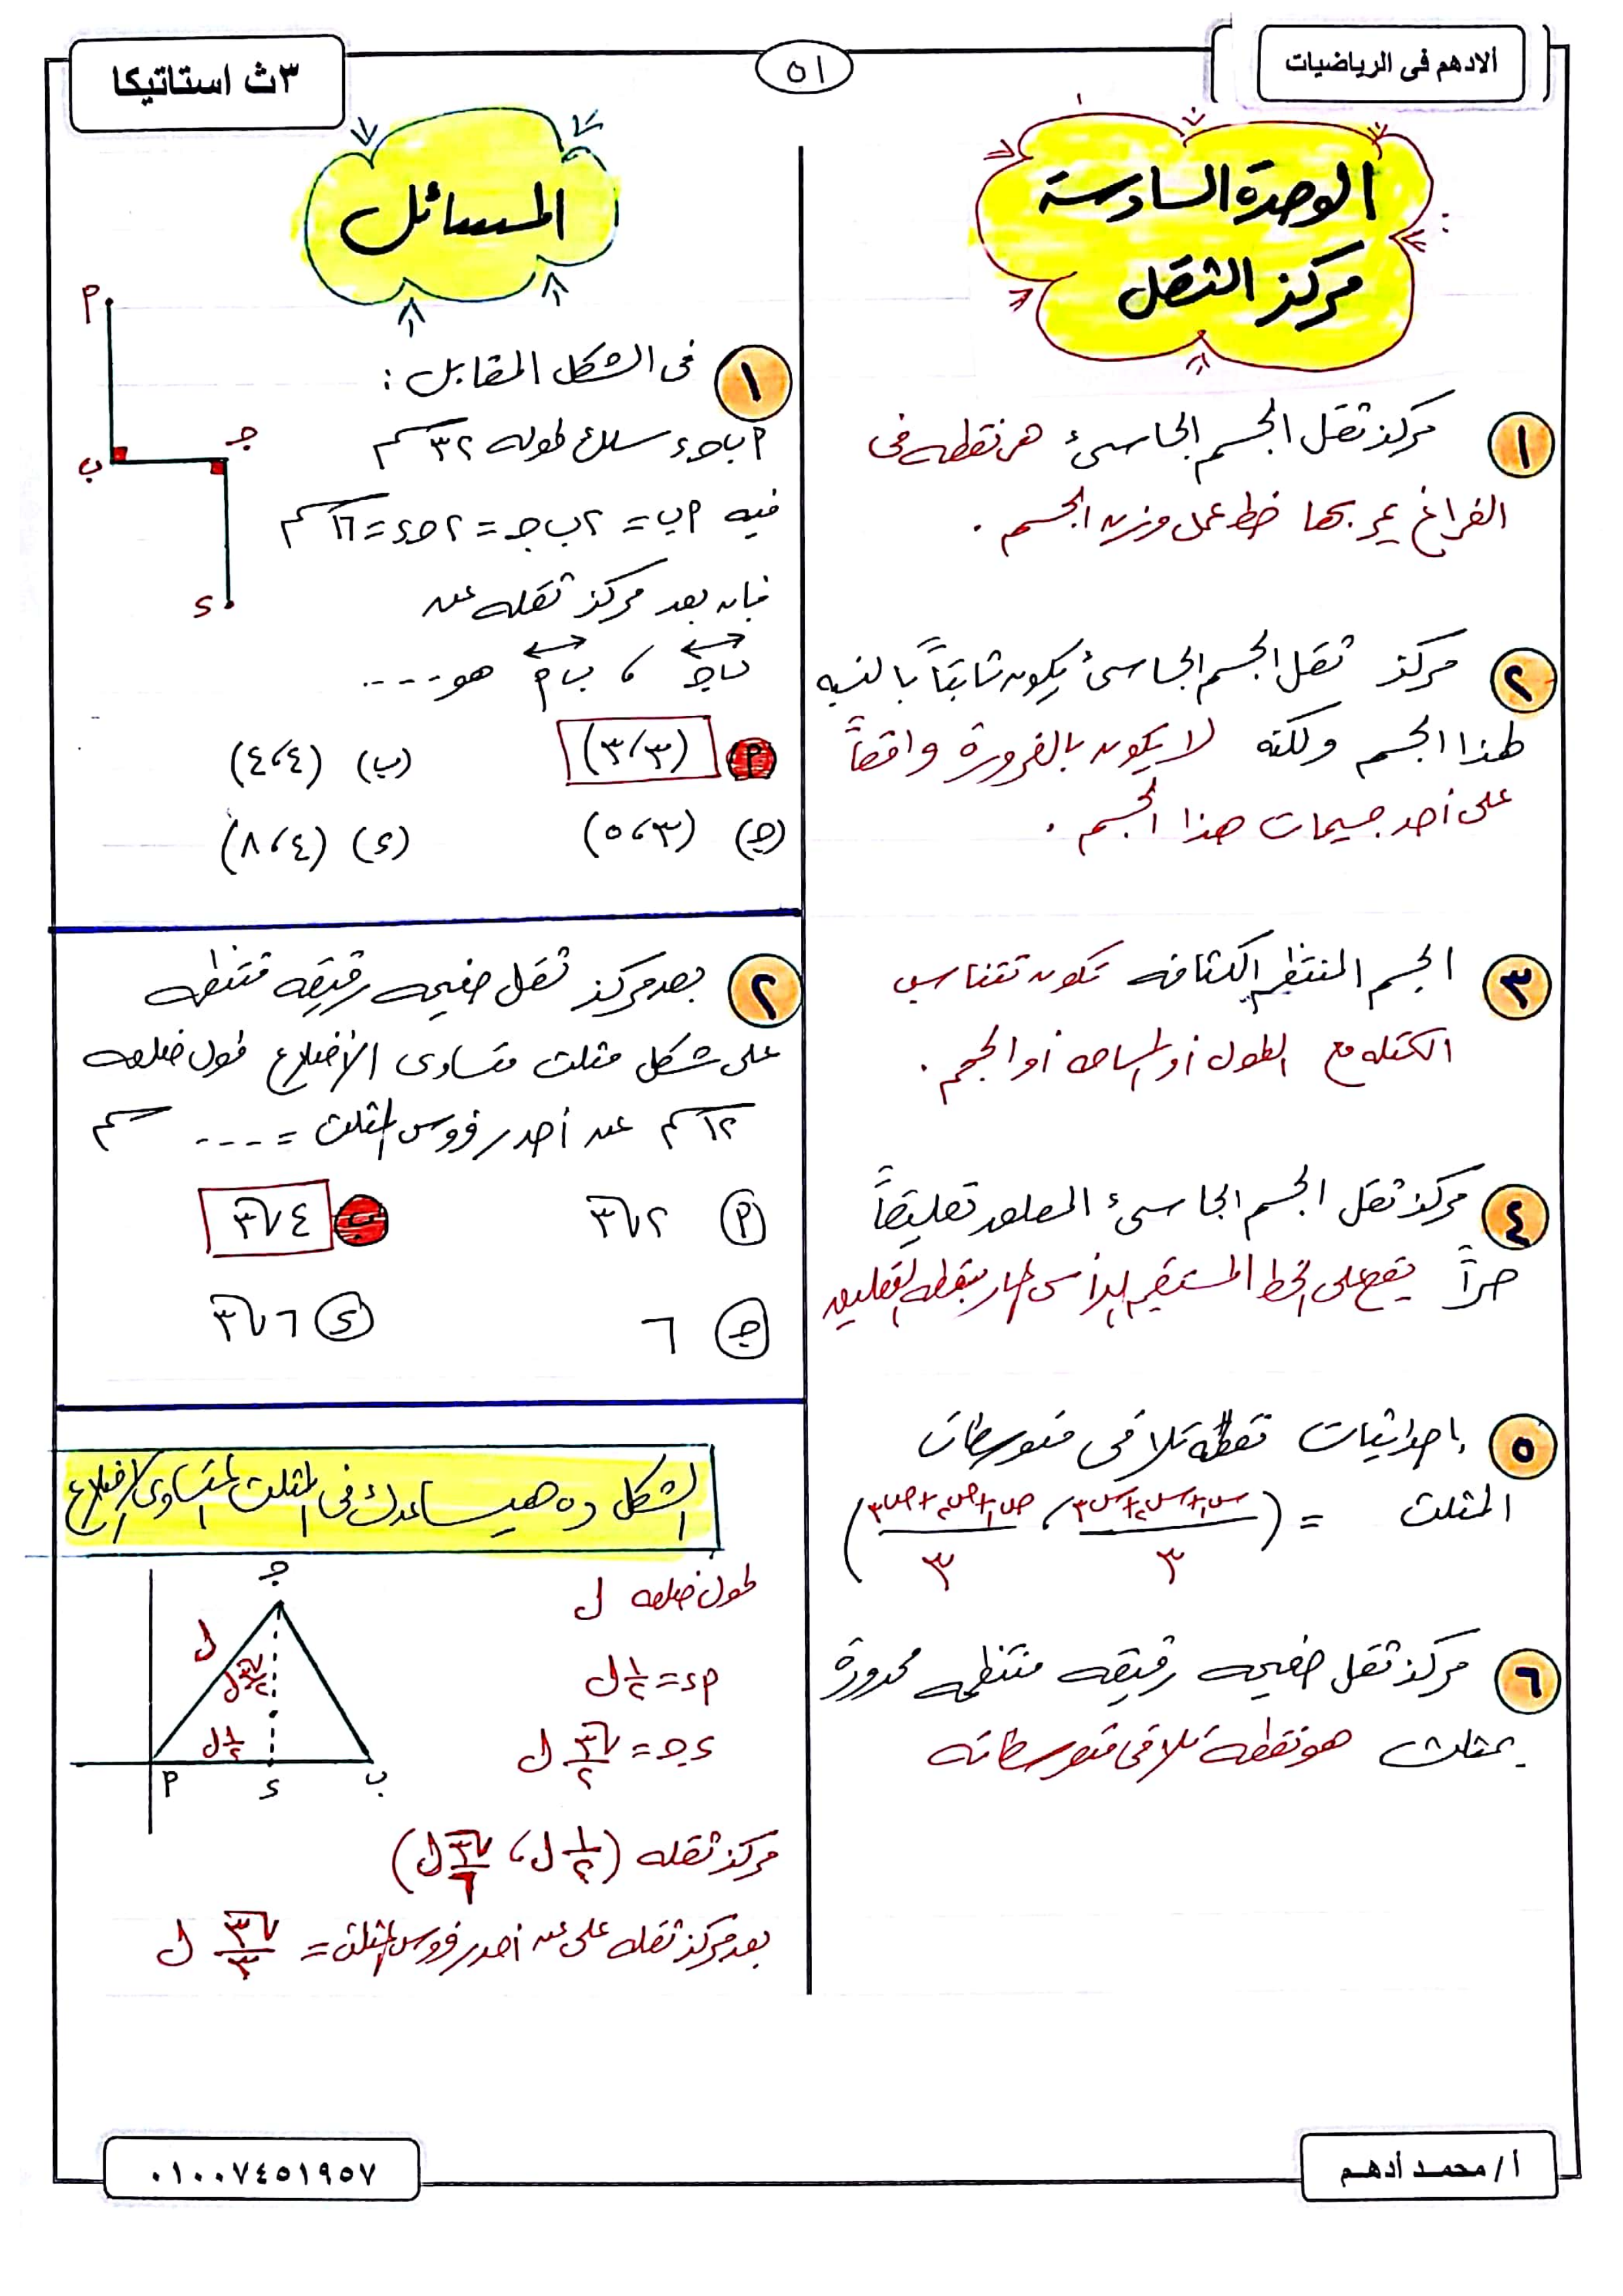 ألادهم فى الرياضيات
٥١
٣ث استاتيكا
الوحدة السادسة
مركز الثقل
١ مركز ثقل الجسم الجاسئ هو نقطه فى
الفراغ يمر بها خط عمل وزن الجسم .
٢ مركز ثقل الجسم الجاسئ يكون ثابتاً بالنسبه
لهذا الجسم ولكنه لا يكون بالضرورة واقعاً
على أحد جسيمات هذا الجسم .
٣ الجسم المنتظم الكثافه تكون تتناسب
الكتله مع الطول أو المساحه أو الحجم .
٤ مركز ثقل الجسم الجاسئ المعلق تعليقاً
حراً يقع على الخط المستقيم الرأسى المار بنقطه التعليق
٥ إحداثيات نقطة تلاقى متوسطات
المثلث = (س١+س٢+س٣ / ٣ ، ص١+ص٢+ص٣ / ٣)
٦ مركز ثقل صفيحه رقيقه منتظمه محدودة
بمثلث هو نقطة تلاقى متوسطاته
المسائل
١ فى الشكل المقابل :
أ ب جـ ء سلك طوله ٣٢ سم
فيه أب = ٢ب جـ = ٢جـ ء = ١٦ سم
فإن بعد مركز ثقله عن
ب جـ ، ب أ هو ....
أ (٣،٣) (ب) (٤،٤)
(جـ) (٥،٣) (ء) (٨،٤)
أ
ب
جـ
ء
٢ بعد مركز ثقل صفيحه رقيقه منتظمه
على شكل مثلث متساوى الأضلاع طول ضلعه
١٢ سم عن أحد رؤوس المثلث = .... سم
أ ٢√٣ ب ٤√٣
جـ ٦ ء ٦√٣
الشكل ده هيساعدك فى المثلث المتساوى الأضلاع
طول ضلعه ل
أء = ١/٢ ل
ء جـ = √٣/٢ ل
جـ
ل
√٣/٢ ل
١/٢ ل
أ
ء
ب
مركز ثقله (١/٢ ل ، √٣/٦ ل)
بعد مركز ثقله على عن أحد رؤوس المثلث = √٣/٣ ل
أ/ محمد أدهم
٠١٠٠٧٤٥١٩٥٧